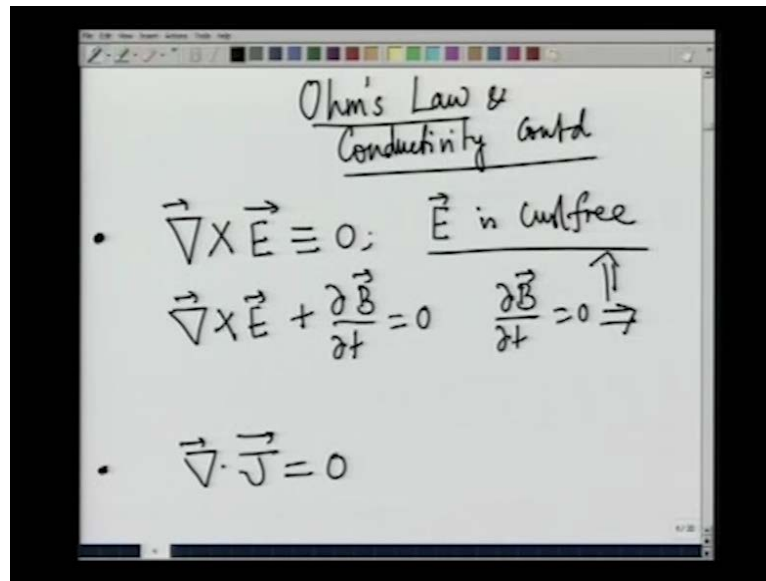 File Edit View Insert Actions Tools Help
Ohm's Law &
Conductivity Contd
• ∇⃗ × E⃗ ≡ 0; E⃗ is curlfree
∇⃗ × E⃗ + ∂B⃗/∂t = 0 ∂B⃗/∂t = 0 ⇒ ⇑
• ∇⃗ · J⃗ = 0